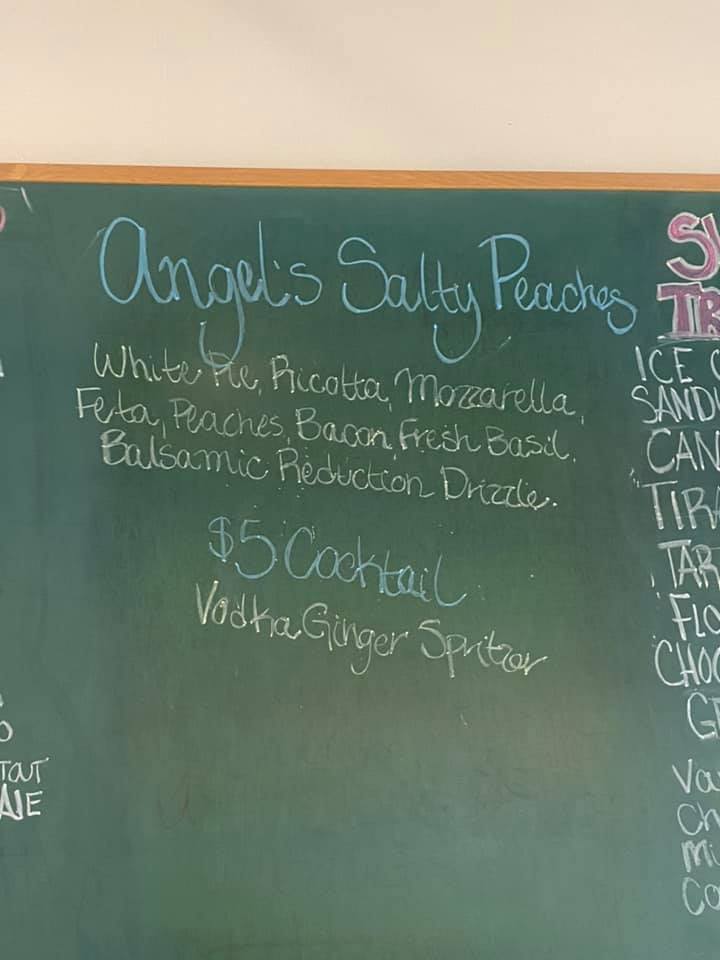 Angel's Salty Peaches
White Pie, Ricotta, Mozzarella,
Feta, Peaches, Bacon, Fresh Basil,
Balsamic Reduction Drizzle.
$5 Cocktail
Vodka Ginger Spritzer
ICE
SANDW
CAN
TIRA
TAR
FLO
CHOC
Va
Ch
Mi
Co
TOUT
ALE